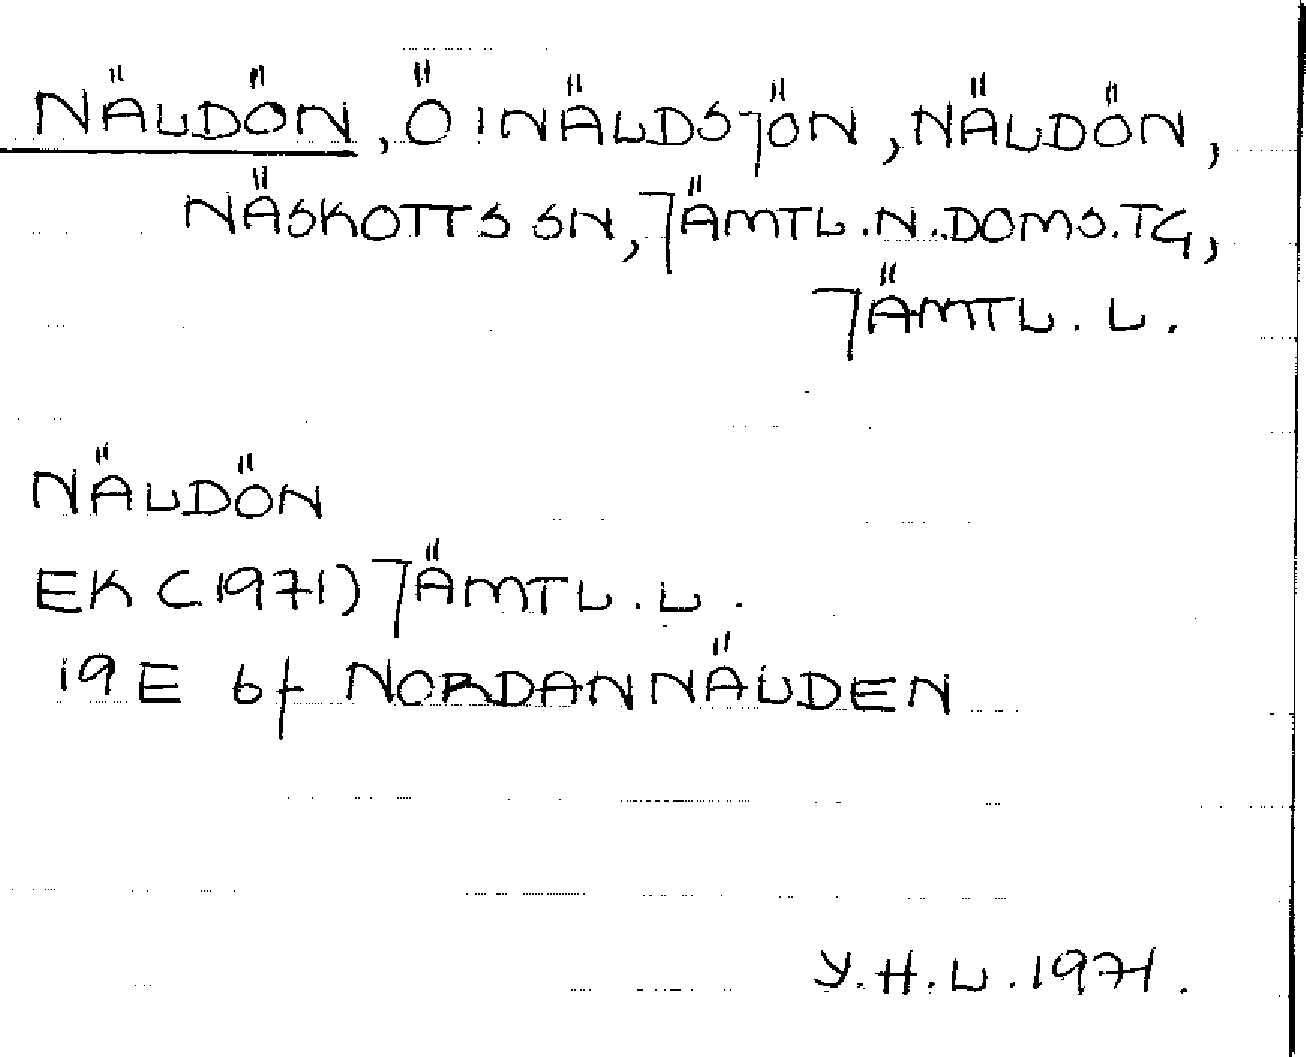 NÄLDÖN, Ö I NÄLDSJÖN, NÄLDÖN,
NÄSKOTTS SN, JÄMTL.N.DOMS.TG,
JÄMTL. L.
NÄLDÖN
EK (1971) JÄMTL. L.
19E 6f NORDANNÄLDEN
Y.H.L. 1971.